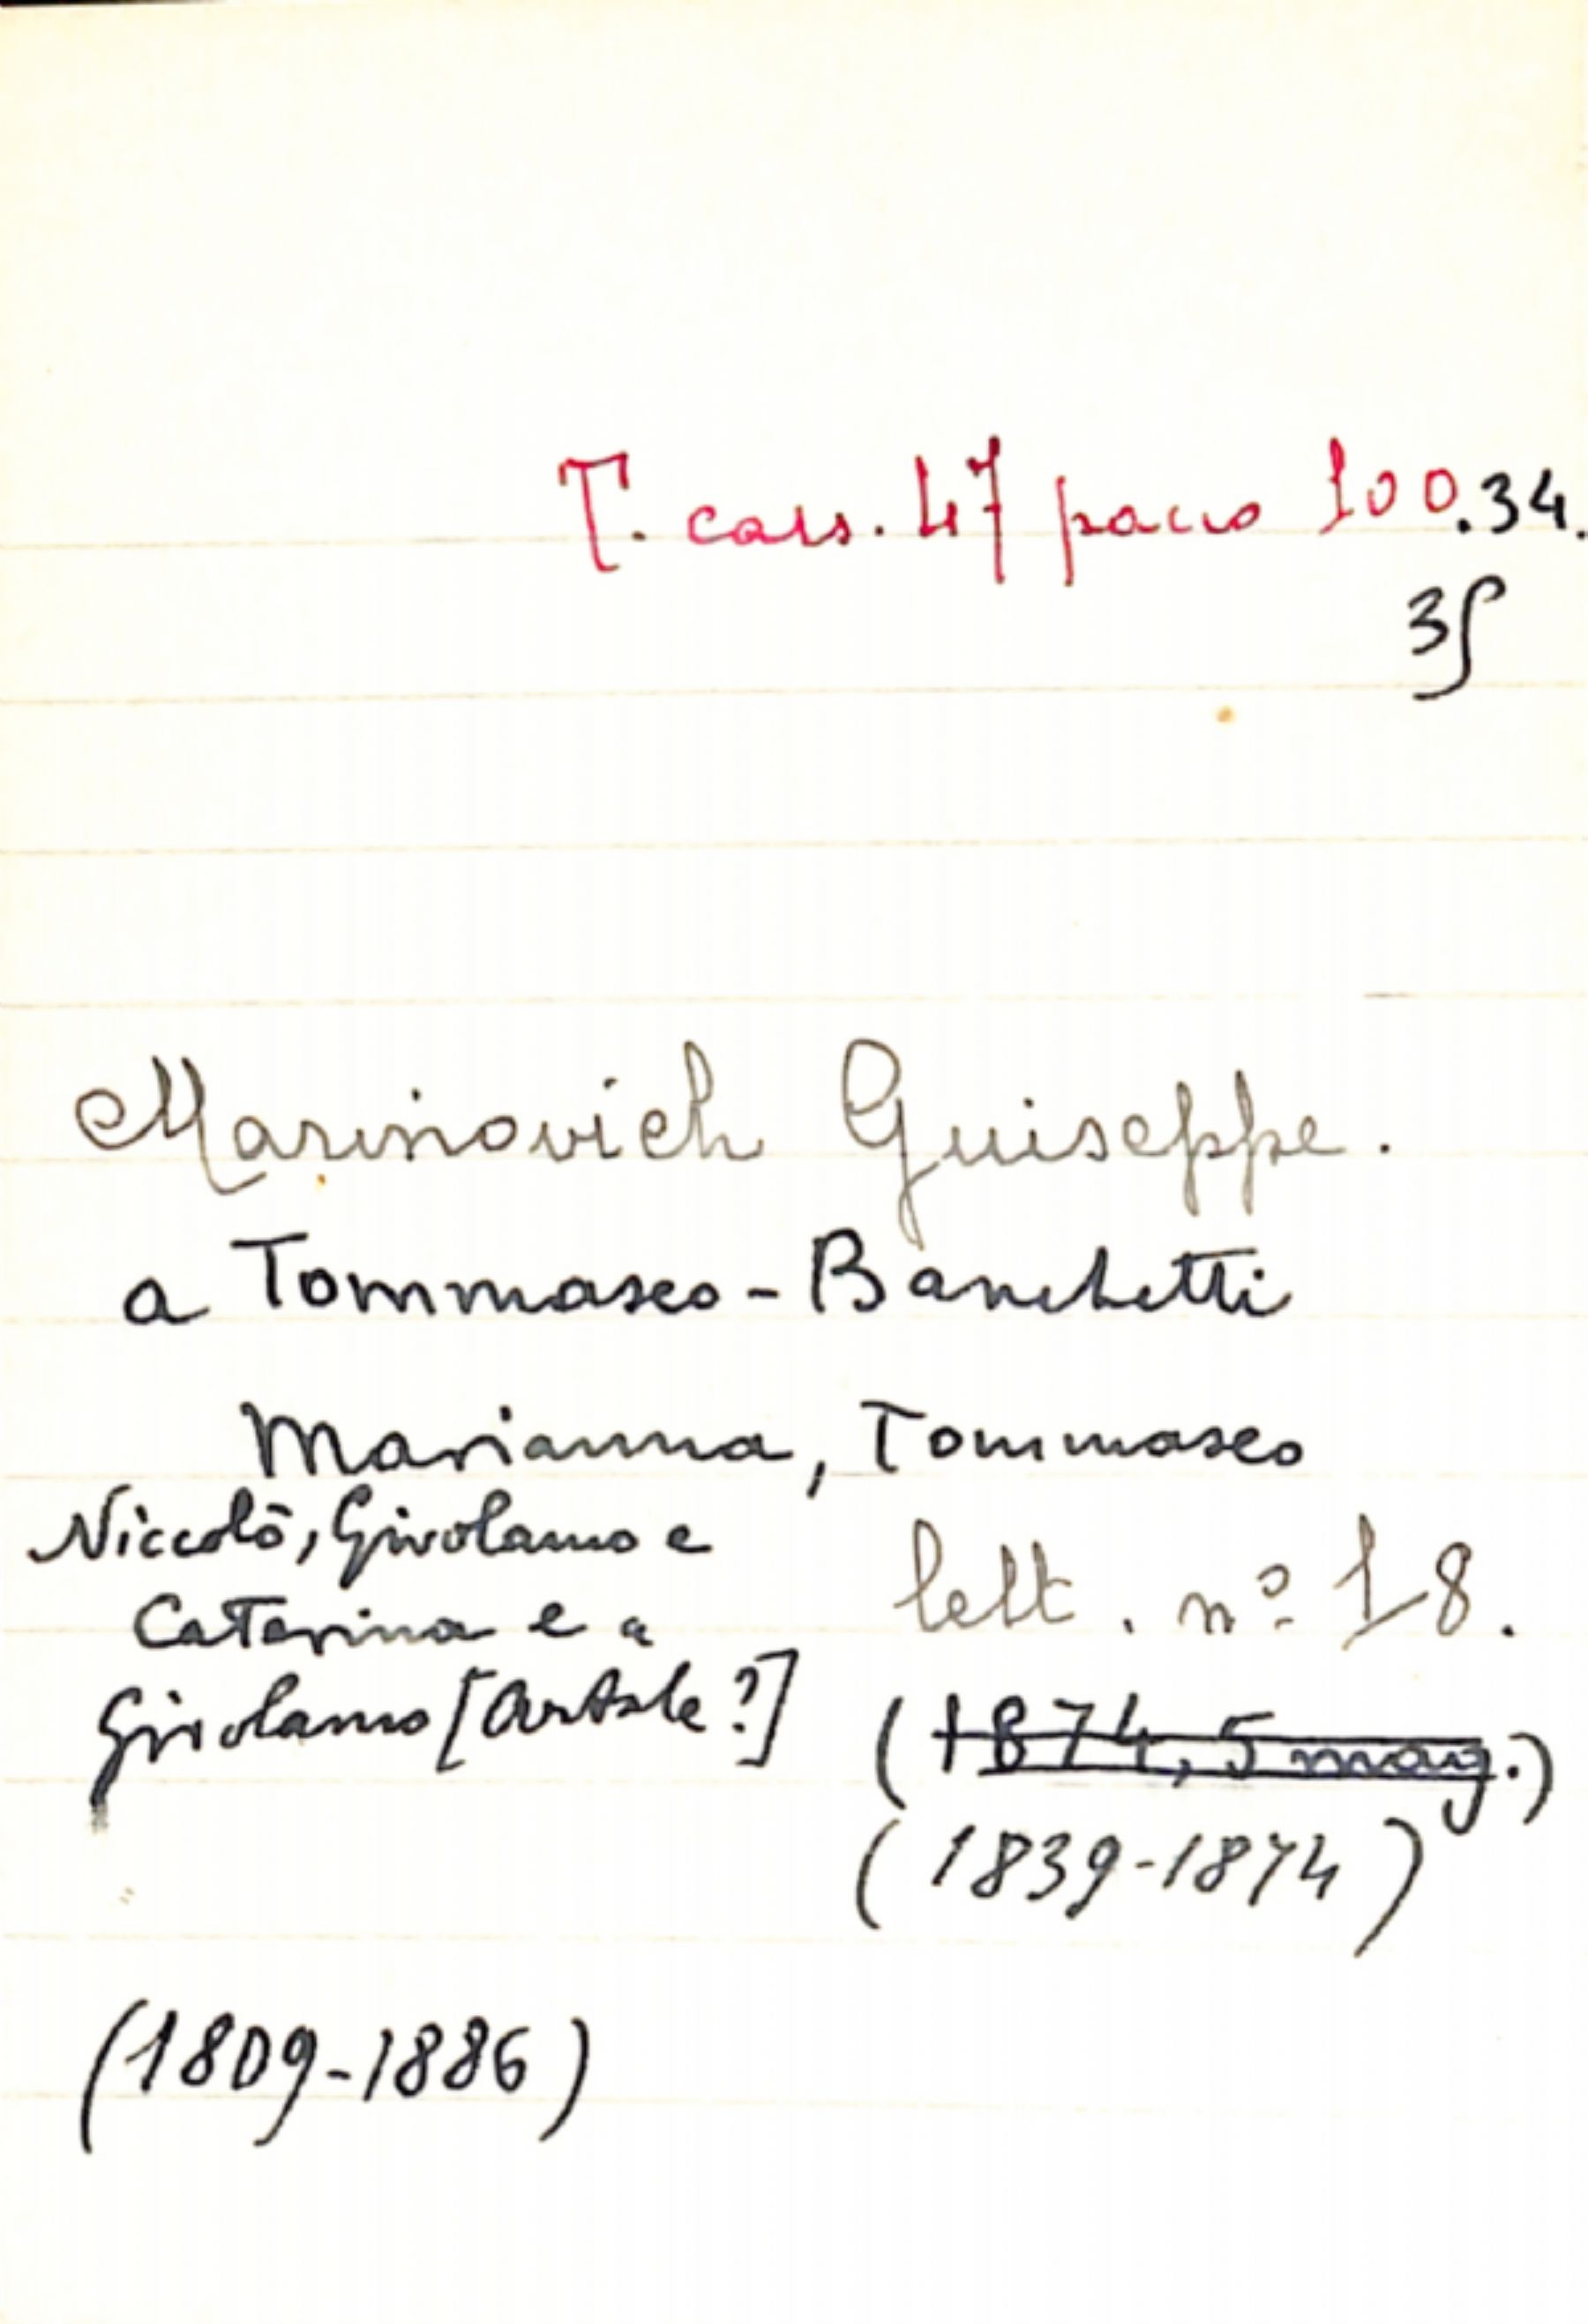 T. cass. 47 pacco 100.34.
35
Marinovich Guiseppe.
a Tommaseo-Banchetti
Marianna, Tommaseo
Niccolò, Girolamo e
lett. nº 18.
Caterina e a
Girolamo [Artale?]
(1874, 5 mag.)
(1839-1874)
(1809-1886)